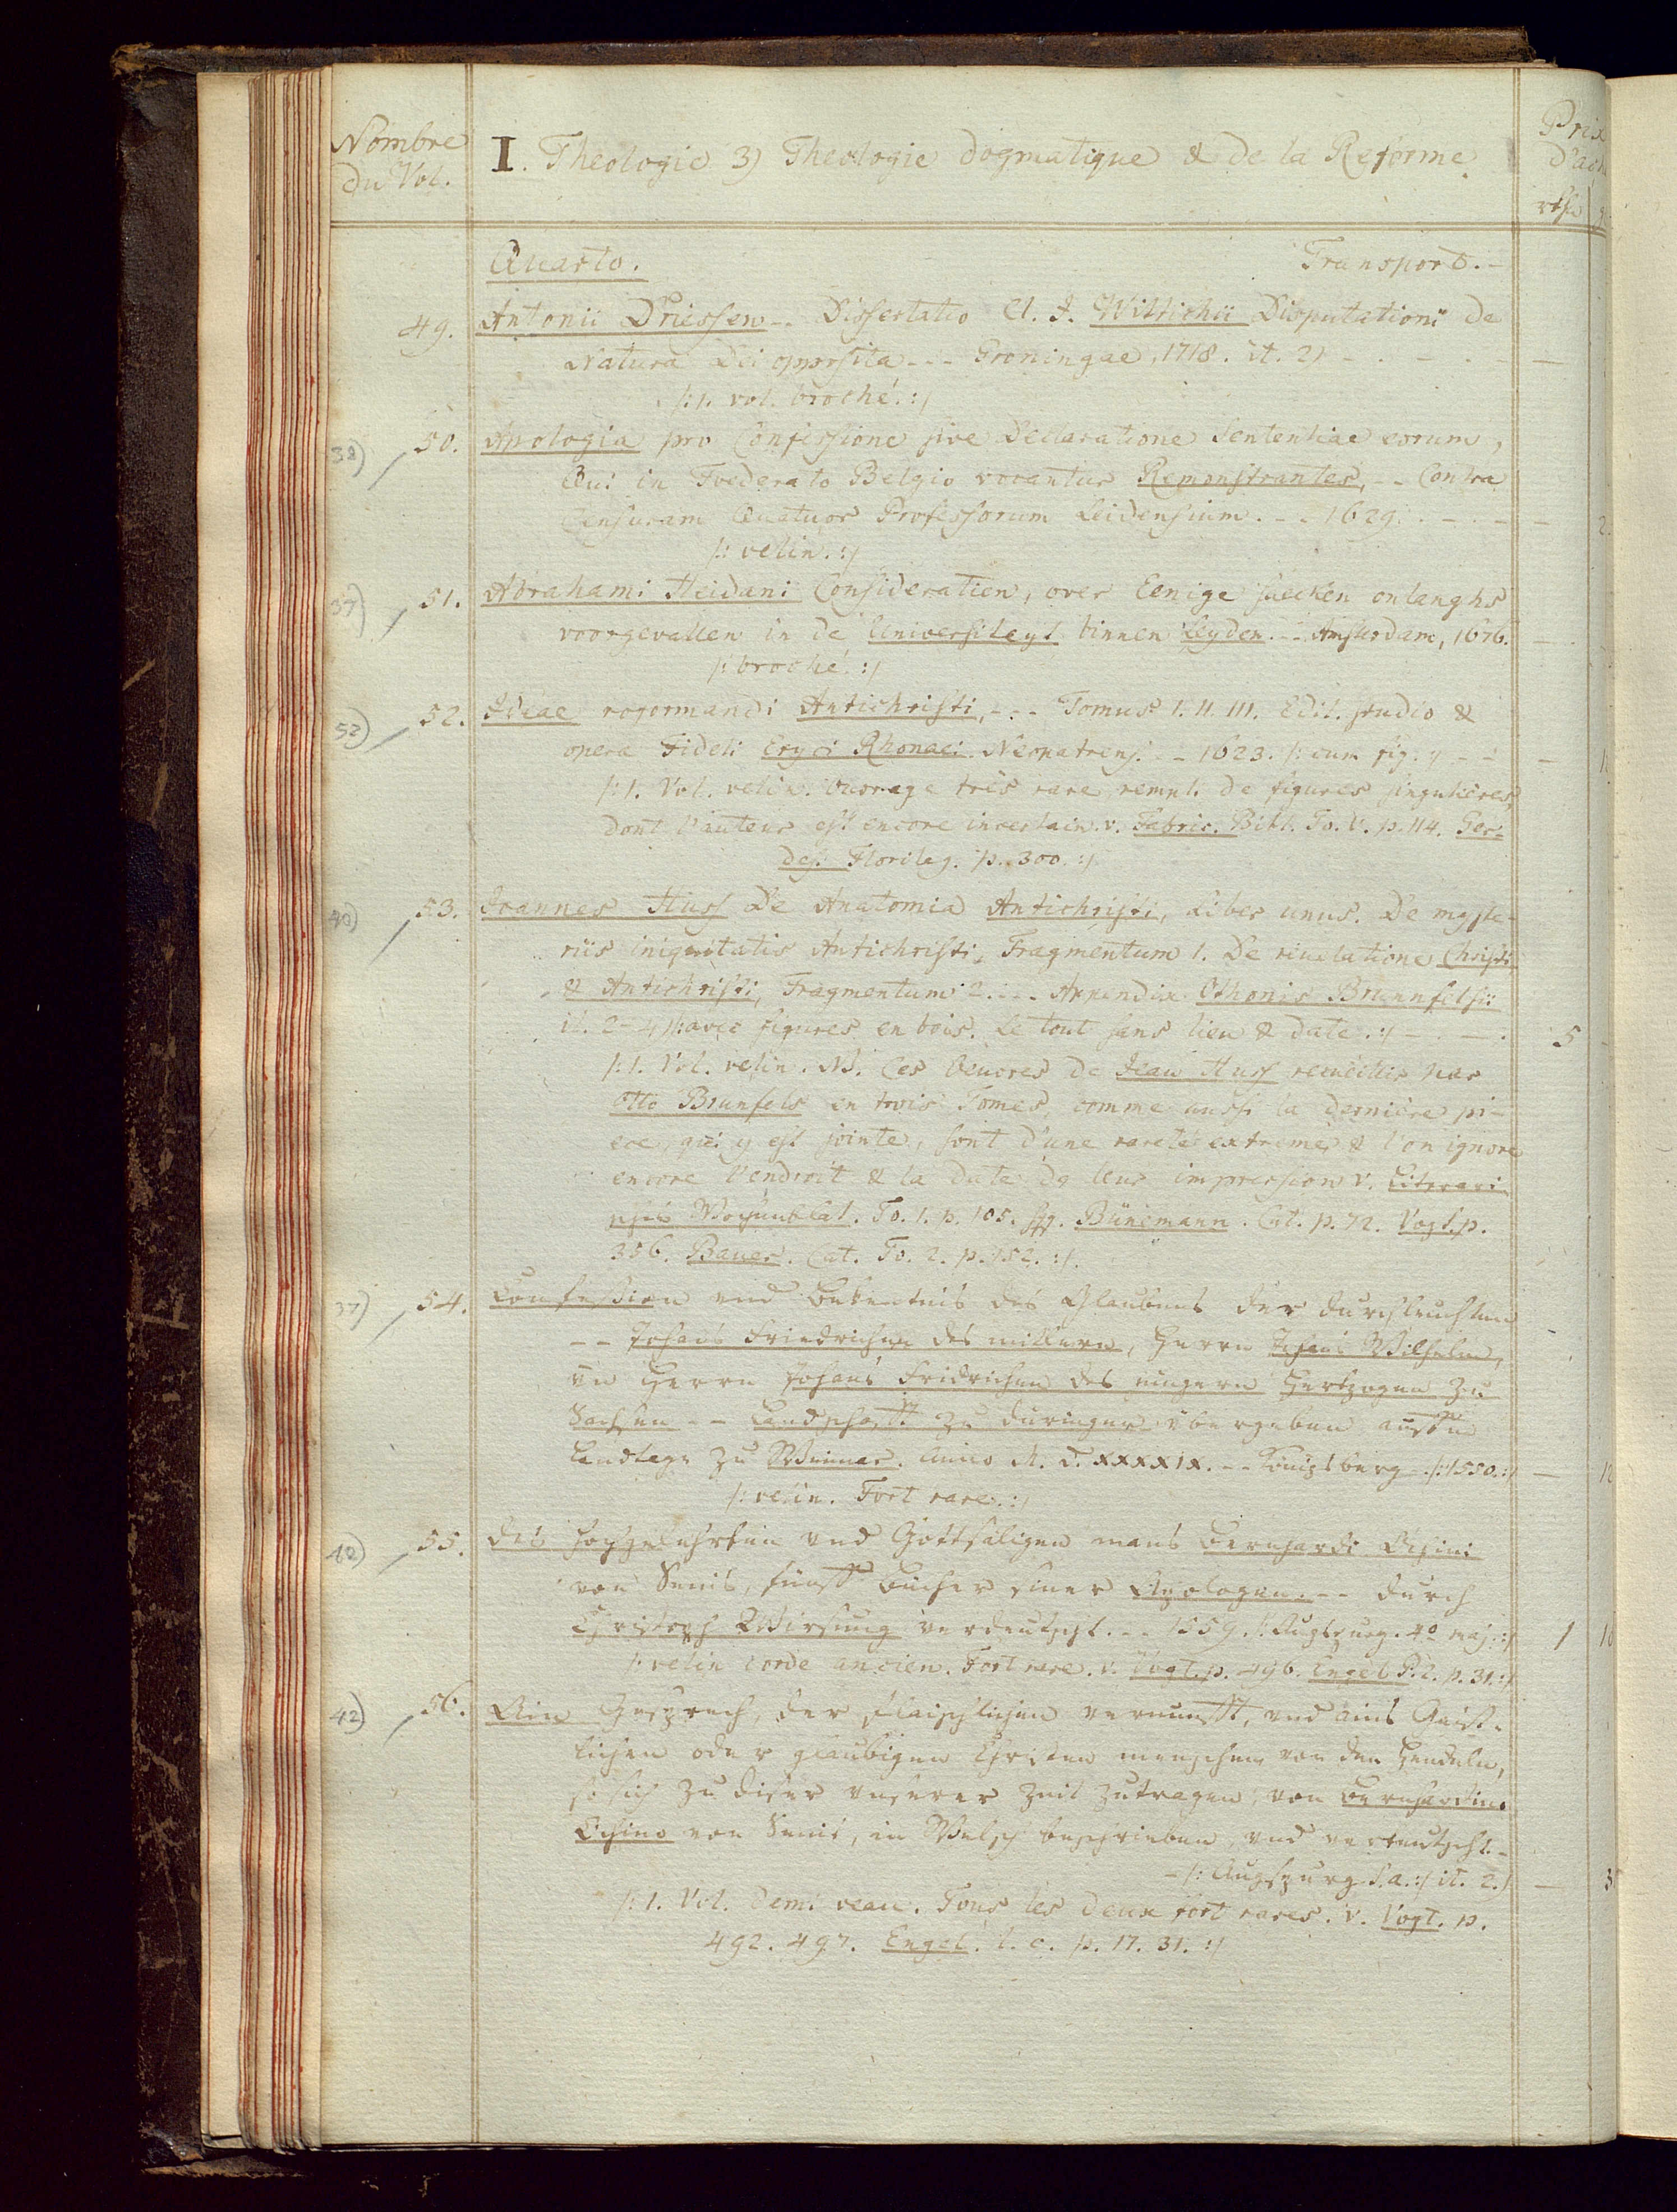 Nombre du Vol.
I. Theologie 3) Theologie dogmatique & de la Reforme.
Prix
d'ach
rthl
Quarto. Transport. -
49. Antonii Driessen -- Dissertatio Cl. J. Wittichii Disputationi de
Natura Dei opposita --- Groningae, 1718. it. 2) - - - -
/: 1. vol. broché. :/
38) 50. Apologia pro Confessione sive Declaratione Sententiae eorum,
Qui in Foederato Belgio vocantur Remonstrantes, -- Contra
Censuram Quatuor Professorum Leidensium. -- 1629. - - - 2.
/: velin. :/
39) 51. Abrahami Heidani Consideratien, over Eenige saecken onlanghs
voorgevallen in de Universiteyt binnen Leyden. -- Amsterdam, 1676. -
/: broché. :/
52) 52. Ideae rogormandi Antichristi, --- Tomus I. II. III. Edit. studio &
opera Fideli Eryci Rhonaei Neopatrens. -- 1623. /: cum fig. :/ - -
/: 1. Vol. velin. Ouvrage très rare, rempl. de figures singulières,
dont l'auteur est encore incertain. v. Fabric. Bibl. To. V. p. 114. Ger-
des. Florileg. p. 300. :/
40) 53. Joannes Huss De Anatomia Antichristi, Liber unus. De myste-
riis iniquitatis Antichristi, Fragmentum 1. De revelatione Christi
& Antichristi, Fragmentum 2. --- Appendix Othonis Brunnfelsii
it. 2-4 /: avec figures en bois. Le tout sans lieu & date. :/ - - - 5
/: 1. Vol. velin. NB. Ces Oeuvres de Jean Huss recueillis par
Otto Brunfels en trois Tomes, comme aussi la derniere pi-
ece, qui y est jointe, sont d'une rareté extreme, & l'on ignore
encore l'endroit & la date de leur impression v. Literari-
sches Wochenblat. To. 1. p. 105. sqq. Bünemann. Cat. p. 72. Vogt. p.
356. Bauer. Cat. To. 2. p. 152. :/
37) 54. Confession und Bekentnis des Glaubens der durchleuchten
-- Johans Friedrichen des mitlern, Herrn Johans Wilhelm,
un Herrn Johans Fridrichen des jungern Hertzogen zu
Sachsen -- Landschafft zu Düringen übergeben auffm
Landtage zu Weimar. Anno M. D. XXXXIX. -- Königsberg -. /: 1550. :/ -
/: velin. Fort rare. :/
42) 55. Des hochgelehrten und Gottsäligen mans Bernhardi Ochini
von Senis, fünff Bücher seiner Apologen. -- durch
Christoph Wirsung verdeutscht. -- 1559. /: Augspurg. 4o maj. :/ 1
/: velin cordé ancien. Fort rare. v. Vogt. p. 496. Engel P. 2. p. 31. :/
42) 56. Ain Gesprech, der flaischlichen vernunfft, und ains Gaist-
lichen oder glaubigen Christen menschen von den Hendeln,
so sich zu diser unserer Zeit zutragen, von Bernhardino
Ochino von Senis, in Welsch beschrieben, und verteutscht. -
- /: Augspurg. s. a. :/ it. 2.) - 3
/: 1. Vol. demi veau. Tous les deux fort rares. v. Vogt. p.
492. 497. Engel. l. c. p. 17. 31. :/